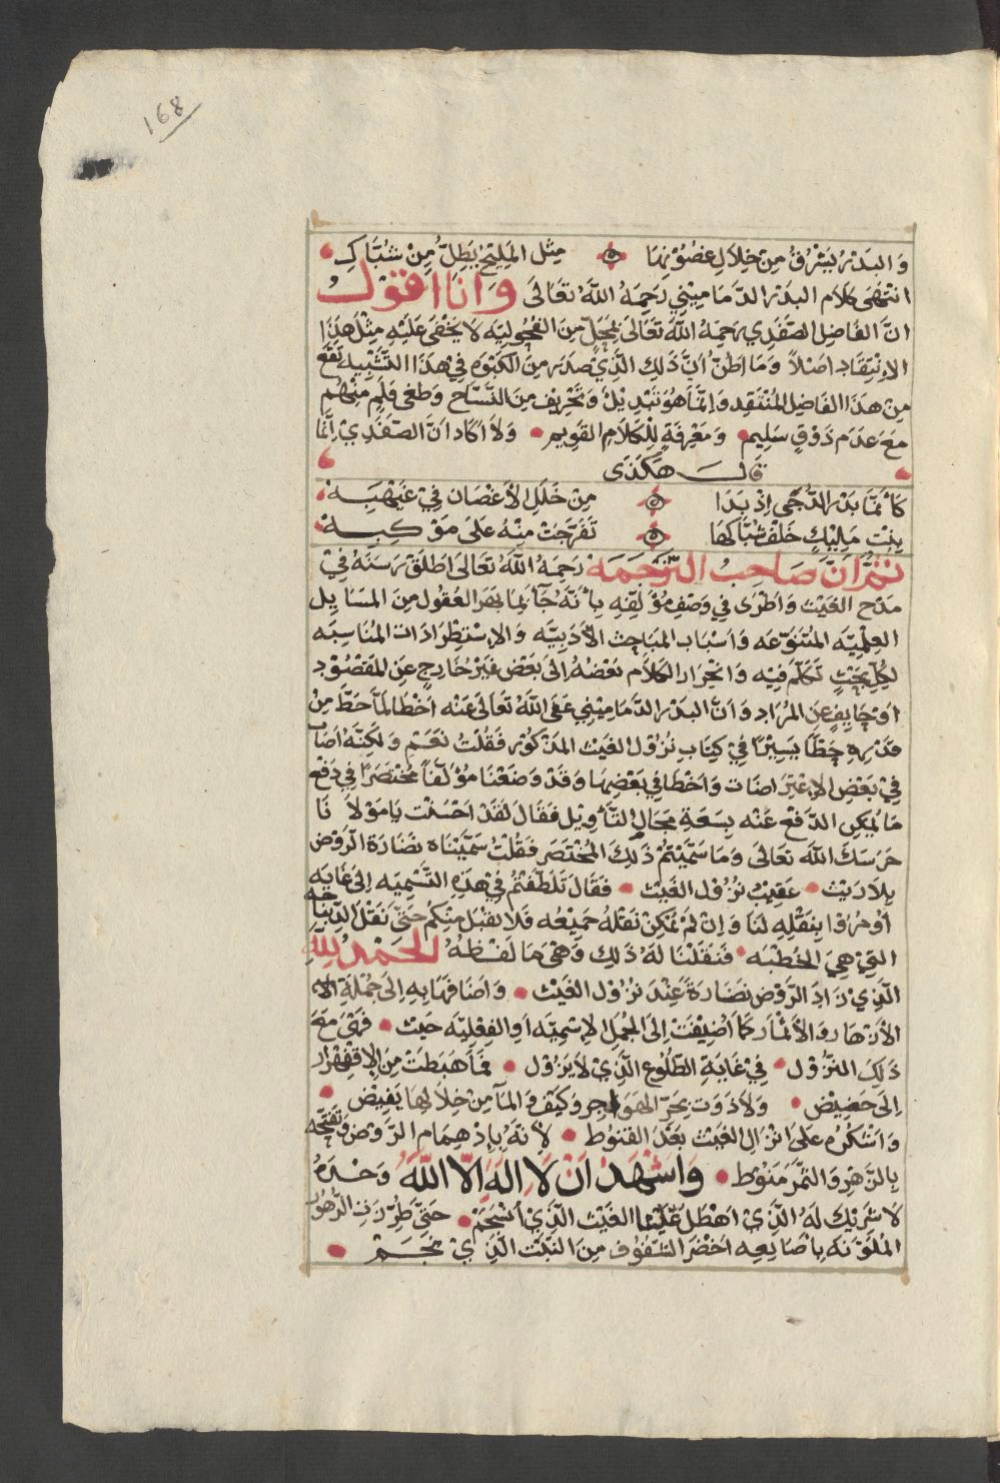 168
وَالبَدْرُ يُشْرِقُ مِنْ خِلَالِ غُصُوْنِهَا ۞ مِثْل المَلِيْحِ يَطِلُّ مِنْ شُبَّاكِ
انْتَهَى كَلَام البدْر الدَّمَامِيْنِي رَحِمَهُ اللهُ تَعَالَى وَانَا اقوْل
انَّ الفَاضِل الصَّفَدِي رَحِمَهُ اللهُ تَعَالَى بِمَحِلٍّ مِنَ الفُحُولِيَّه لَا يَخْفَى عَلَيْهِ مِثْل هَذَا
الاِنْتِقَاد اصْلًا وَمَا اظُنُّ انَّ ذَلِك الَّذِيْ صَدَرَ مِنَ الكَبْوَه فِي هَذَا التَّشْبِيْه يَقَعُ
مِنْ هَذَا الفَاضِل المُنْتَقِد وَانَّمَا هُوَ تَبْدِيْلٌ وَتَحْرِيْف مِنَ النُّسَّاخ وَطَغَى قَلَم مِنْهُم
مَعَ عَدَم ذَوْقٍ سَلِيم وَمَعْرِفَةٍ لِلْكَلَامِ القَوِيم وَلَا اكَاد انَّ الصَّفَدِيْ انَّمَا
قال هَكَذَى
كَأَنَّمَا بَدْر الدُّجَى اِذْ بَدَا ۞ مِنْ خَلَلِ الأَغْصَان فِيْ غَيْهَبِه
بِنْت مَلِيْكٍ خَلْفَ شُبَّاكِهَا ۞ تَفَرَّجَتْ مِنْهُ عَلَى مَوْكِبِهْ
ثُمَّ انَّ صَاحِبُ التَّرْجَمَه رَحِمَهُ اللهُ تَعَالَى اطْلَقَ رَسَنَهُ فِيْ
مَدْح الغَيْث وَاطْرَى فِي وَصْفِ مُؤَلِّفِهِ بِأَنَّهُ جَآءَ بِمَا بَهَرَ العُقُول مِنَ المَسَايِل
العِلْمِيَّه المُتَنَوِّعَه وَاسْبَاب المَبَاحِث الأَدَبِيَّه وَالاِسْتِطْرَادَات المُنَاسِبَه
لِكُلِّ بَحْثٍ تَكَلَّمَ فِيْه وَانْجِرَار الكَلَام بَعْضهُ اِلَى بَعْض غَيْرُ خَارِجٍ عَنِ المَقْصُوْد
اوْ حَايِفٍ عَنِ المُرَاد وَانَّ البَدْر الدَّمَامِيْنِي عَفَى اللهُ تَعَالَى عَنْه اخْطَأ لمَّا حَطَّ مِنْ
قَدْرِهِ حَطًّا يَسِيْرًا فِيْ كِتَابِ نُزُوْل الغَيْث المَذْكُوْر فَقُلْتُ نَعَم وَلَكِنَّهُ اصَابَ
فِيْ بَعْضِ الاِعْتِرَاضَات وَاخْطَا فِي بَعْضِهَا وَقَدْ وَضَعْنَا مُؤَلَّفاً مُخْتَصَرًا فِي دَفْع
مَا يُمْكِن الدَّفْع عَنْه بِسَعَةِ مَجَالِ التَّأْوِيْل فَقَالَ لَقَدْ احْسَنْت يَا مَوْلَانَا
حَرَسَكَ اللهُ تَعَالَى وَمَا سَمَّيْتُمْ ذَلِكَ المُخْتَصَر فَقُلْتُ سَمَّيْنَاه نَضَارَة الرَّوْض
بِلَا رَيْث عَقِيْبَ نُزُوْل الغَيْث فَقَالَ تَلَطَّفْتُمْ فِيْ هَذِهِ التَّسْمِيَه اِلَى غَايَه
أُوْمُرُوْا بِنَقْلِهِ لَنَا وَاِنْ لَمْ يُمْكِنْ نَقْلهُ جَمِيْعُه فَلَا نَقْبَل مِنْكُم حَتَّى نَنْقل الدِّيْبَاجَه
الَّتِيْ هِيَ الخُطْبَه فَنَقَلْنَا لَهُ ذَلِك وَهْيَ مَا لَفْظهُ الحَمْدُ لِلهِ
الَّذِيْ زَادَ الرَّوْض نَضَارَةً عِنْدَ نُزُوْل الغَيْث وَاضَافَهَا بِهِ اِلَى جُمْلَةِ الاه
الأَزْهَار وَالأَثْمَار كَمَا أُضِيْفَت اِلَى الجُمَل الاِسْمِيَّه اَوِ الفِعْلِيَّه حَيْث فَهْيَ مَعَ
ذَلِكَ النُّزُوْل فِيْ غَايَةِ الطُّلُوْع الَّذِيْ لَا يَزُوْل فَمَا هَبَطَتْ مِنَ الاِقْهِرَار
اِلَى حَضِيْض وَلَا ذَوَت بِحَرِّ الهَوَاجِر وَكَيْفَ وَالمَآء مِنْ خِلَالِهَا يَفِيْض
وَاشْكُرُه عَلَى انْزَالِ الغَيْث بَعْدَ القُنُوْط لِأَنَّهُ بِاِدْهِمَام الرَّوْض وَتَفَتُّحِه
بِالزَّهْرِ وَالثَّمَر مَنُوْط وَاَشْهَدُ انْ لَا اِلَهَ اِلَّا اللهُ وَحْدَهُ
لَا شَرِيْك لَهُ الَّذِيْ اهْطَلَ عَلَيْنَا الغَيْث الَّذِيْ أَسْجَم حَتَّى طُرِّزَتِ الزُّهُوْر
المُلَوَّنَه بِأَصَابِعِه اخْضَرَ الشُّفُوْف مِنَ النَّبْت الَّذِيْ نَجَم